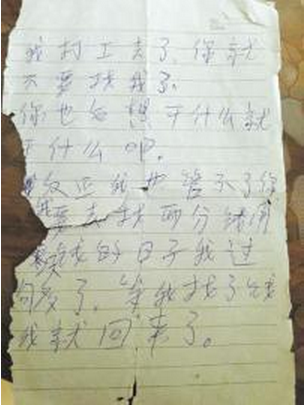 我打工去了,你就
不要找我了。
你也想干什么就
干什么吧。
反正我也管不了你
我要去找两分钱用
没钱的日子我过
够了,等我找了钱
我就回来了。